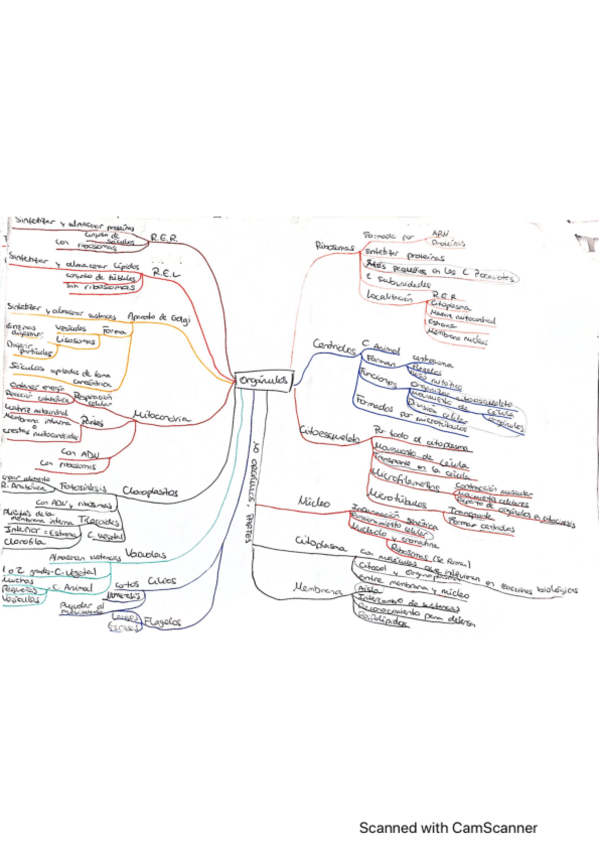 Sintetizar y almacenar proteínas
conjunto de sáculos
con ribosomas
R.E.R.
Sintetizar y almacenar Lípidos
conjunto de túbulos
sin ribosomas
R.E.L
Sintetizar y almacenar sustancias
Aparato de Golgi
Enzimas digestivas
Vesículas
Forma
Lisosomas
Digerir partículas
Sáculos apilados de forma
Obtener energía
Respiración celular
Reacción catabólica
Matriz mitocondrial
Membrana interna
Partes
crestas mitocondriales
Mitocondria
Con ADN
Con ribosomas
crear alimento
R. Anabólica
Fotosíntesis
Cloroplastos
Con ADN y ribosomas
membrana interna
Tilacoides
Interior = Estroma
C. Vegetal
Clorofila
Almacenan sustancias
Vacuolas
1 o 2 grandes - C. Vegetal
Muchas
Pequeñas
C. Animal
Vesículas
Cortos
Cilios
Numerosos
Ayudar al movimiento
Largos
Escasos
Flagelos
Orgánulos
NO ORGÁNULOS, PARTES
Ribosomas
Formado por
ARN
Proteínas
Sintetizar proteínas
Más pequeños en las C. Procariotas
2 Subunidades
Localización
R.E.R
Citoplasma
Matriz mitocondrial
Estroma
Membrana nuclear
Centriolos
C. Animal
Forman
centrosoma
Flagelos
Huso mitótico
Funciones
Organizar citoesqueleto
Movimiento de
célula
orgánulos
División celular
Formados por microtúbulos
Citoesqueleto
Por todo el citoplasma
Movimiento de célula
Transporte en la célula
Microfilamentos
Contracción muscular
Movimientos celulares
Reparto de orgánulos en citocinesis
Microtúbulos
Transporte
Formar centriolos
Núcleo
Información genética
Funcionamiento celular
Nucleolo y cromatina
Ribosomas (se forma)
Citoplasma
Con moléculas que intervienen en reacciones biológicas
Citosol y orgánulos
Entre membrana y núcleo
Membrana
Aisla
Intercambio de sustancias
Reconocimiento para defensa
Fosfolípidos
Scanned with CamScanner